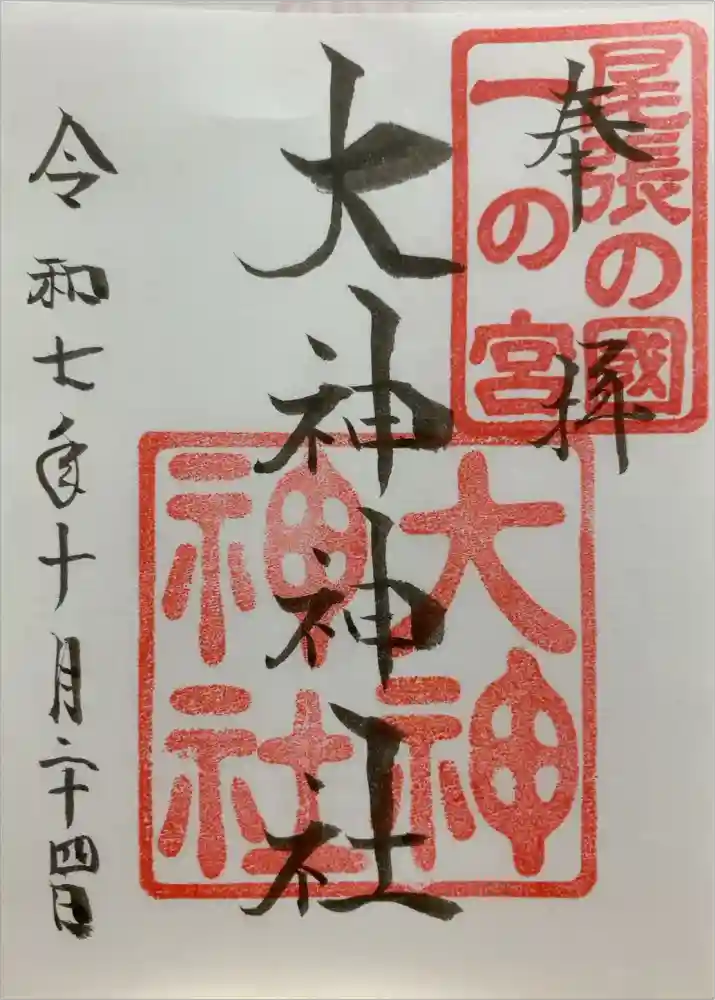 奉拝
尾張の國
一の宮
大神神社
大神
神社
令和七年十月二十四日